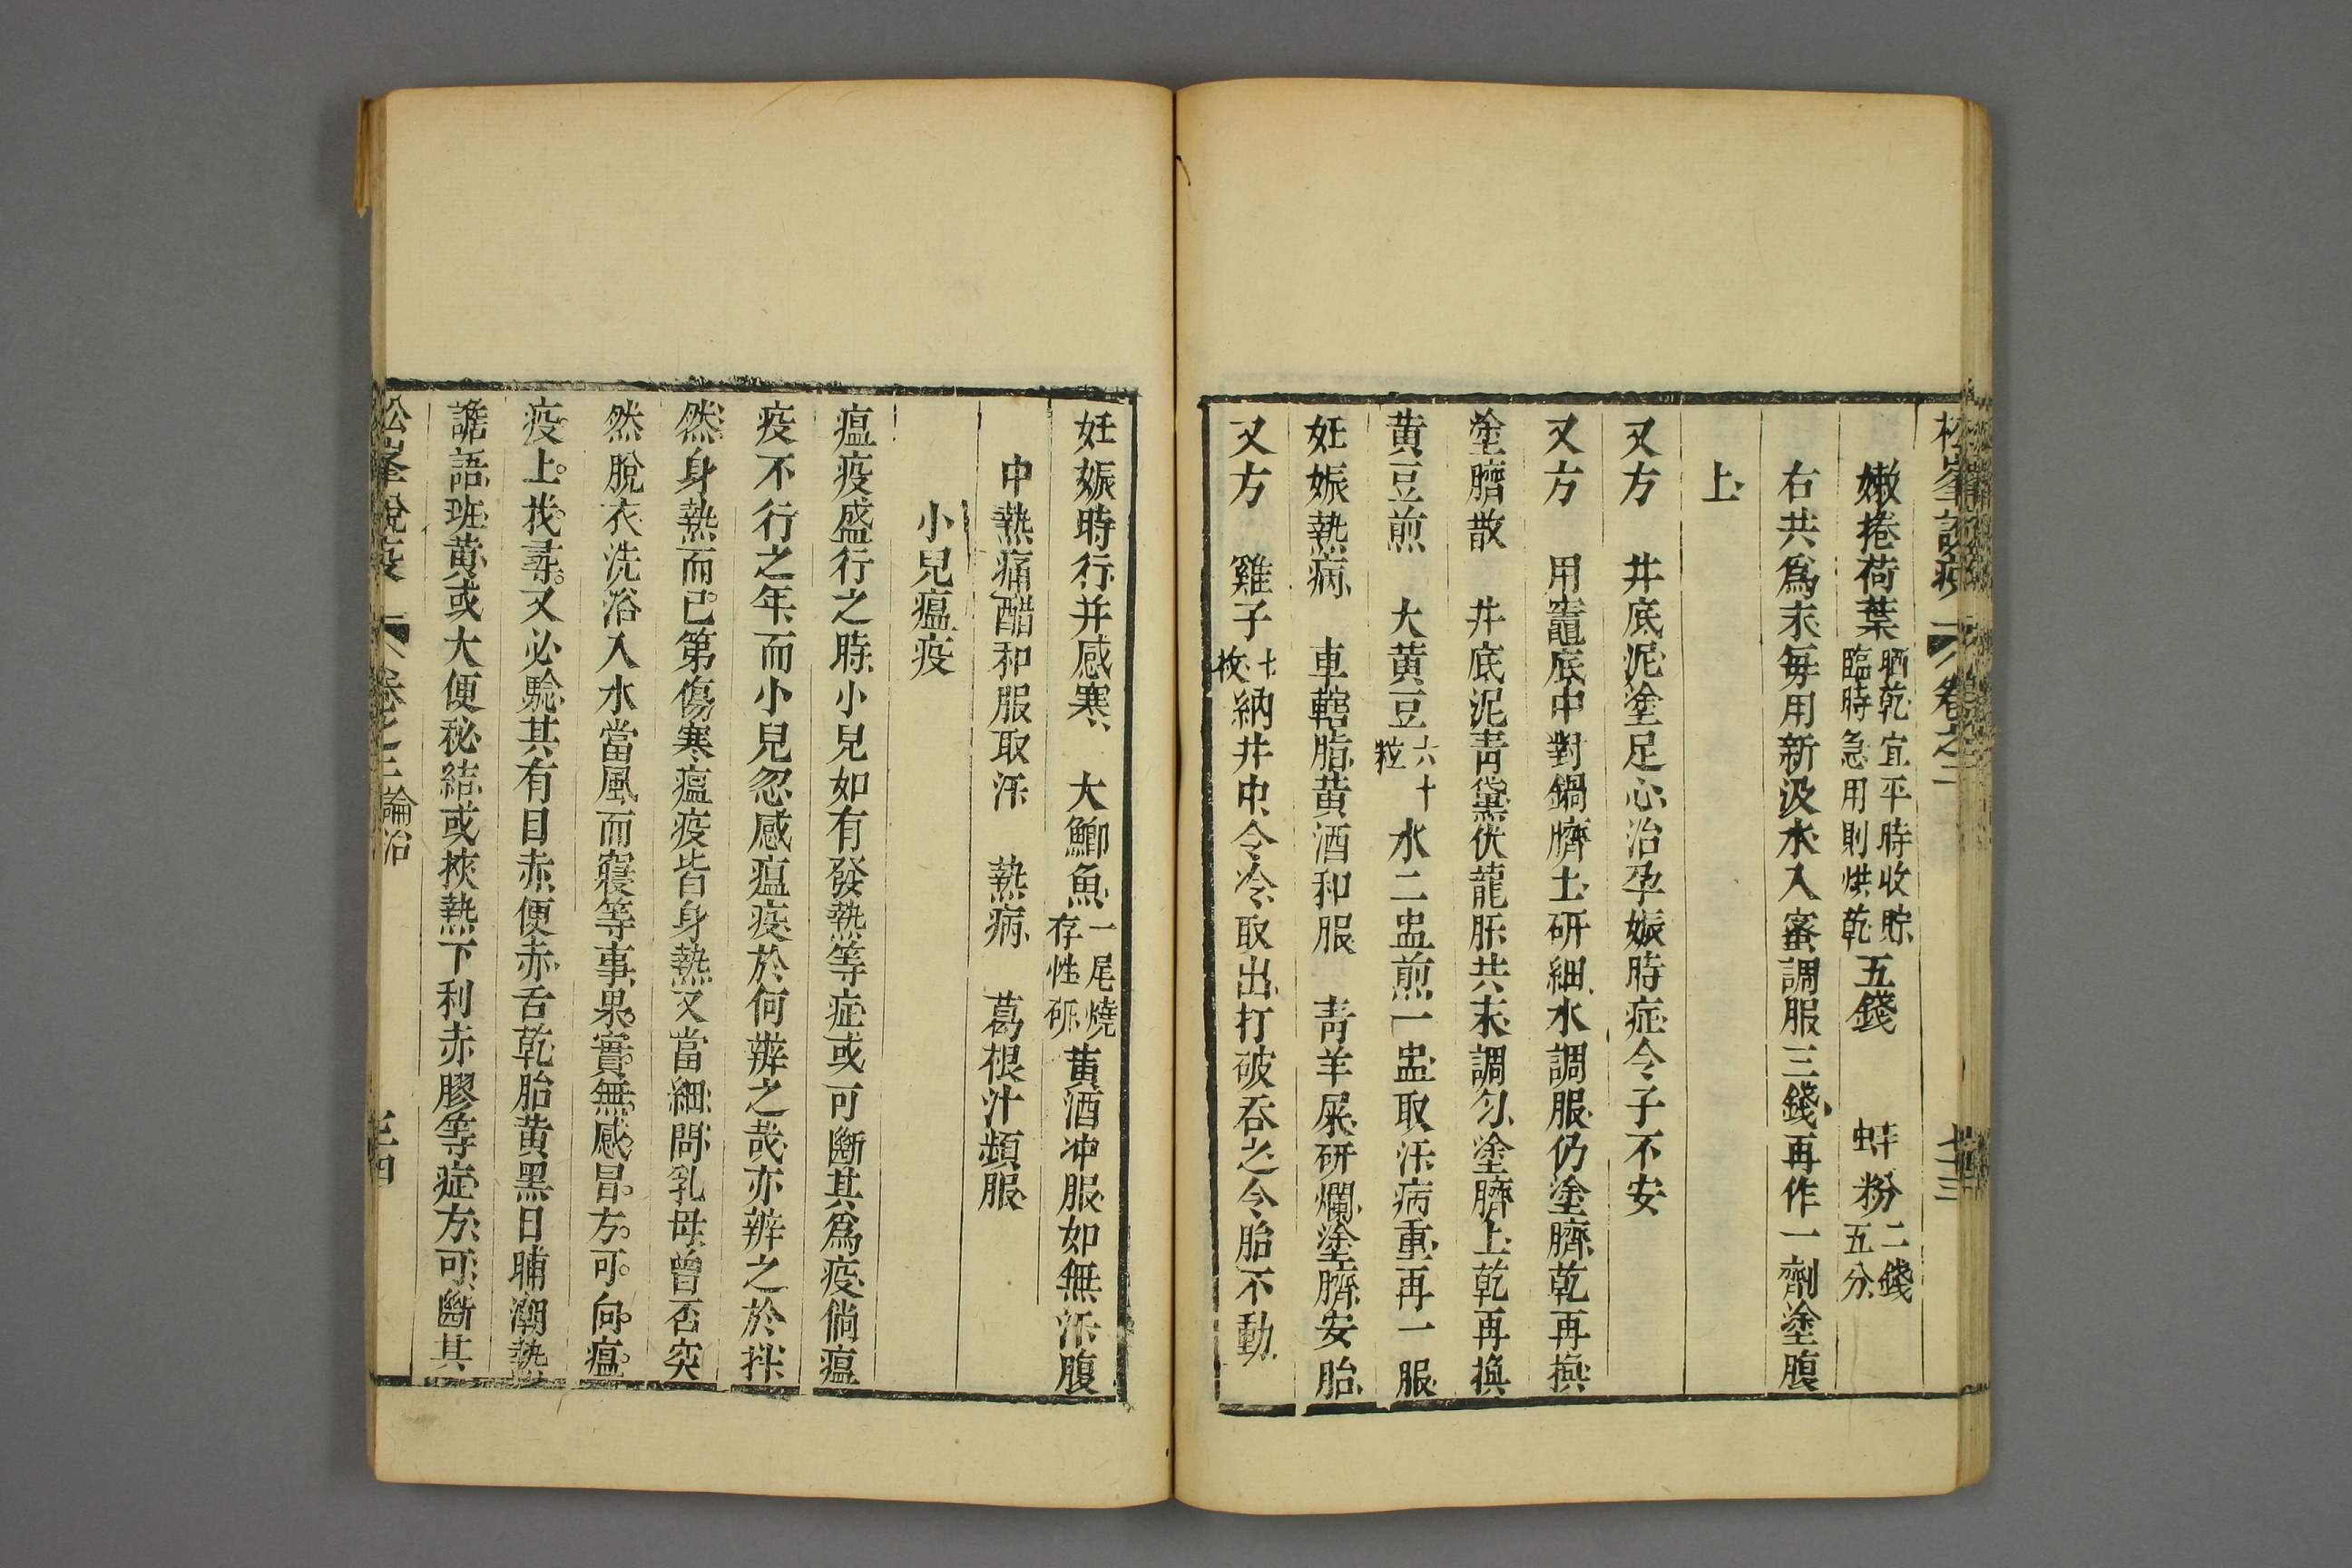 嫩捲荷葉晒乾宜平時收貯臨時急用則烘乾五錢　蚌粉二錢五分
右共爲末每用新汲水入蜜調服三錢再作一劑塗腹
上
又方　井底泥塗足心治孕娠時症令子不安
又方　用竈底中對鍋臍土研細水調服仍塗臍乾再換
塗臍散　井底泥靑黛伏龍肝共末調勻塗臍上乾再換
黃豆煎　大黃豆六十粒水二盅煎一盅取汗病重再一服
妊娠熱病　車轄脂黃酒和服　靑羊屎研爛塗臍安胎
又方　雞子七枚納井中令冷取出打破吞之令胎不動
妊娠時行并感寒　大鯽魚一尾燒存性研黃酒冲服如無汗腹
中熱痛醋和服取汗　熱病　葛根汁頻服
小兒瘟疫
瘟疫盛行之時小兒如有發熱等症或可斷其爲疫倘瘟
疫不行之年而小兒忽感瘟疫於何辨之哉亦辨之於抖
然身熱而已第傷寒瘟疫皆身熱又當細問乳母曾否突
然脫衣洗浴入水當風而寢等事果實無感冒方可向瘟
疫上找尋又必驗其有目赤便赤舌乾胎黃黑日晡潮熱
譫語班黃或大便秘結或挾熱下利赤膠等症方可斷其
松峯說疫　卷之三論治　三四